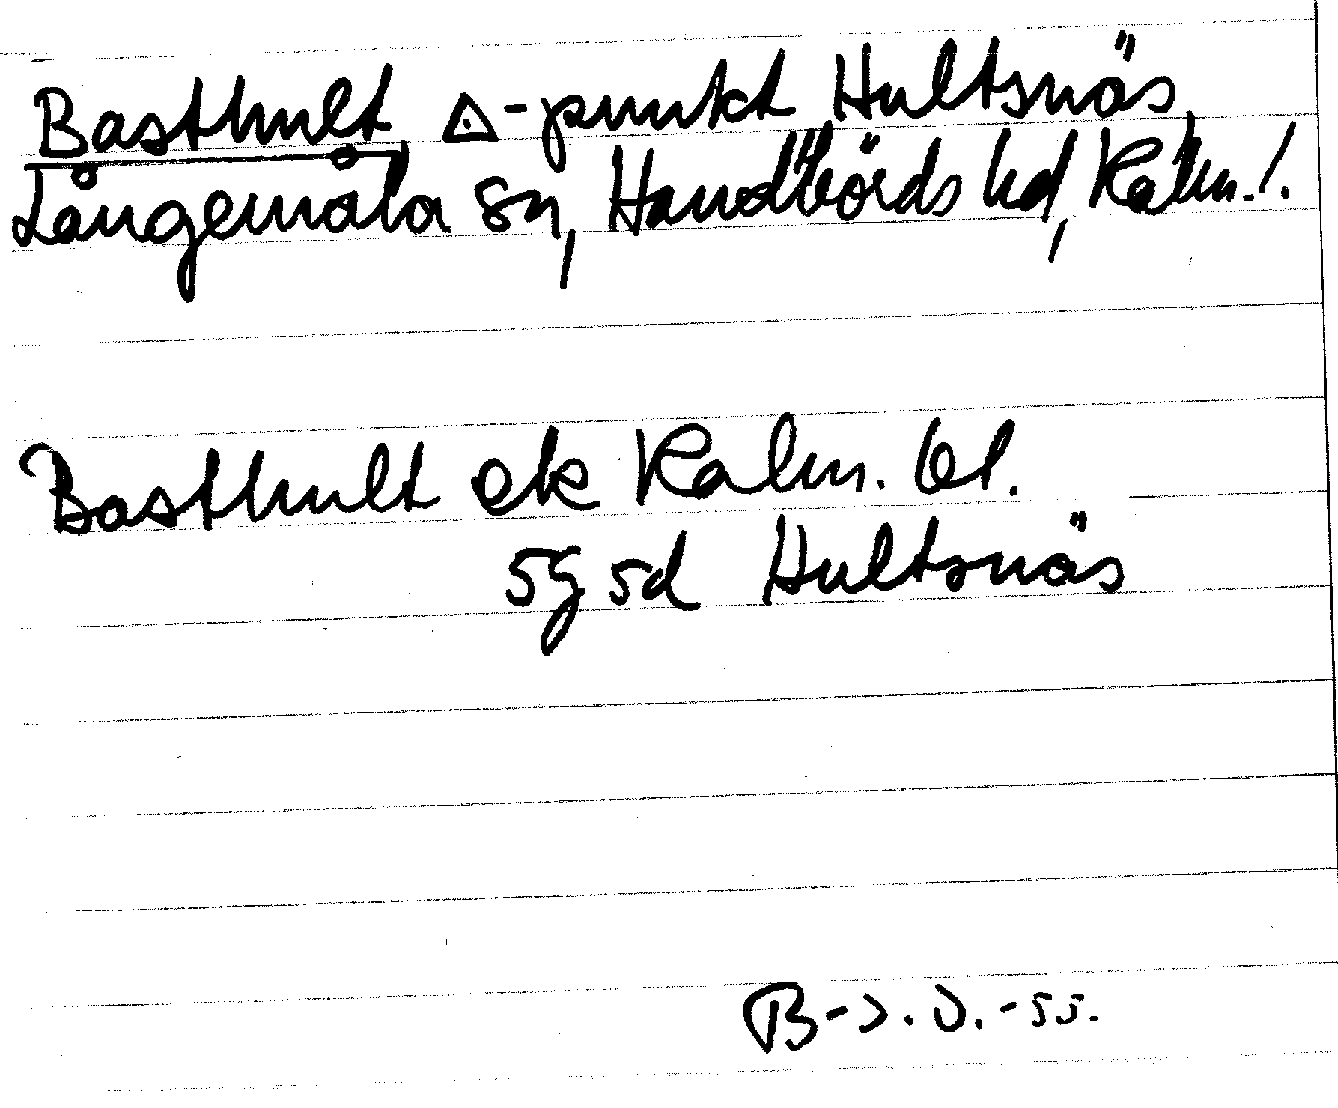 Basthult △-punkt Hultsnäs
Långemåla sn, Handbörds hd, Kalm. l.
Basthult ek Kalm. bl.
5g 5d Hultsnäs